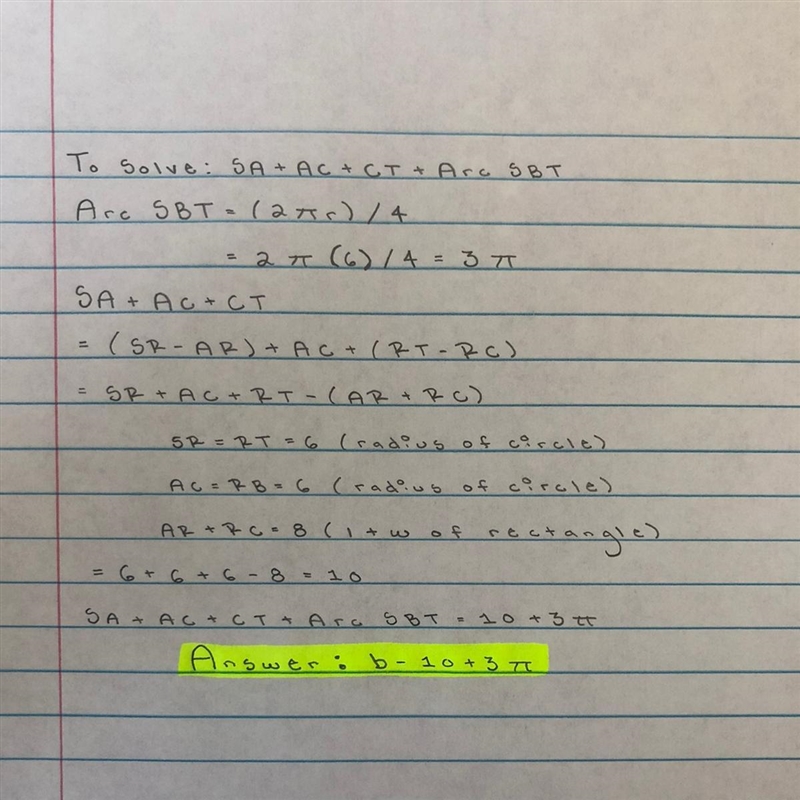 To Solve: SA + AC + CT + Arc SBT
Arc SBT = (2πr)/4
= 2π(6)/4 = 3π
SA + AC + CT
= (SR - AR) + AC + (RT - RC)
= SR + AC + RT - (AR + RC)
SR = RT = 6 (radius of circle)
AC = RB = 6 (radius of circle)
AR + RC = 8 (l + w of rectangle)
= 6 + 6 + 6 - 8 = 10
SA + AC + CT + Arc SBT = 10 + 3π
Answer: b - 10 + 3π